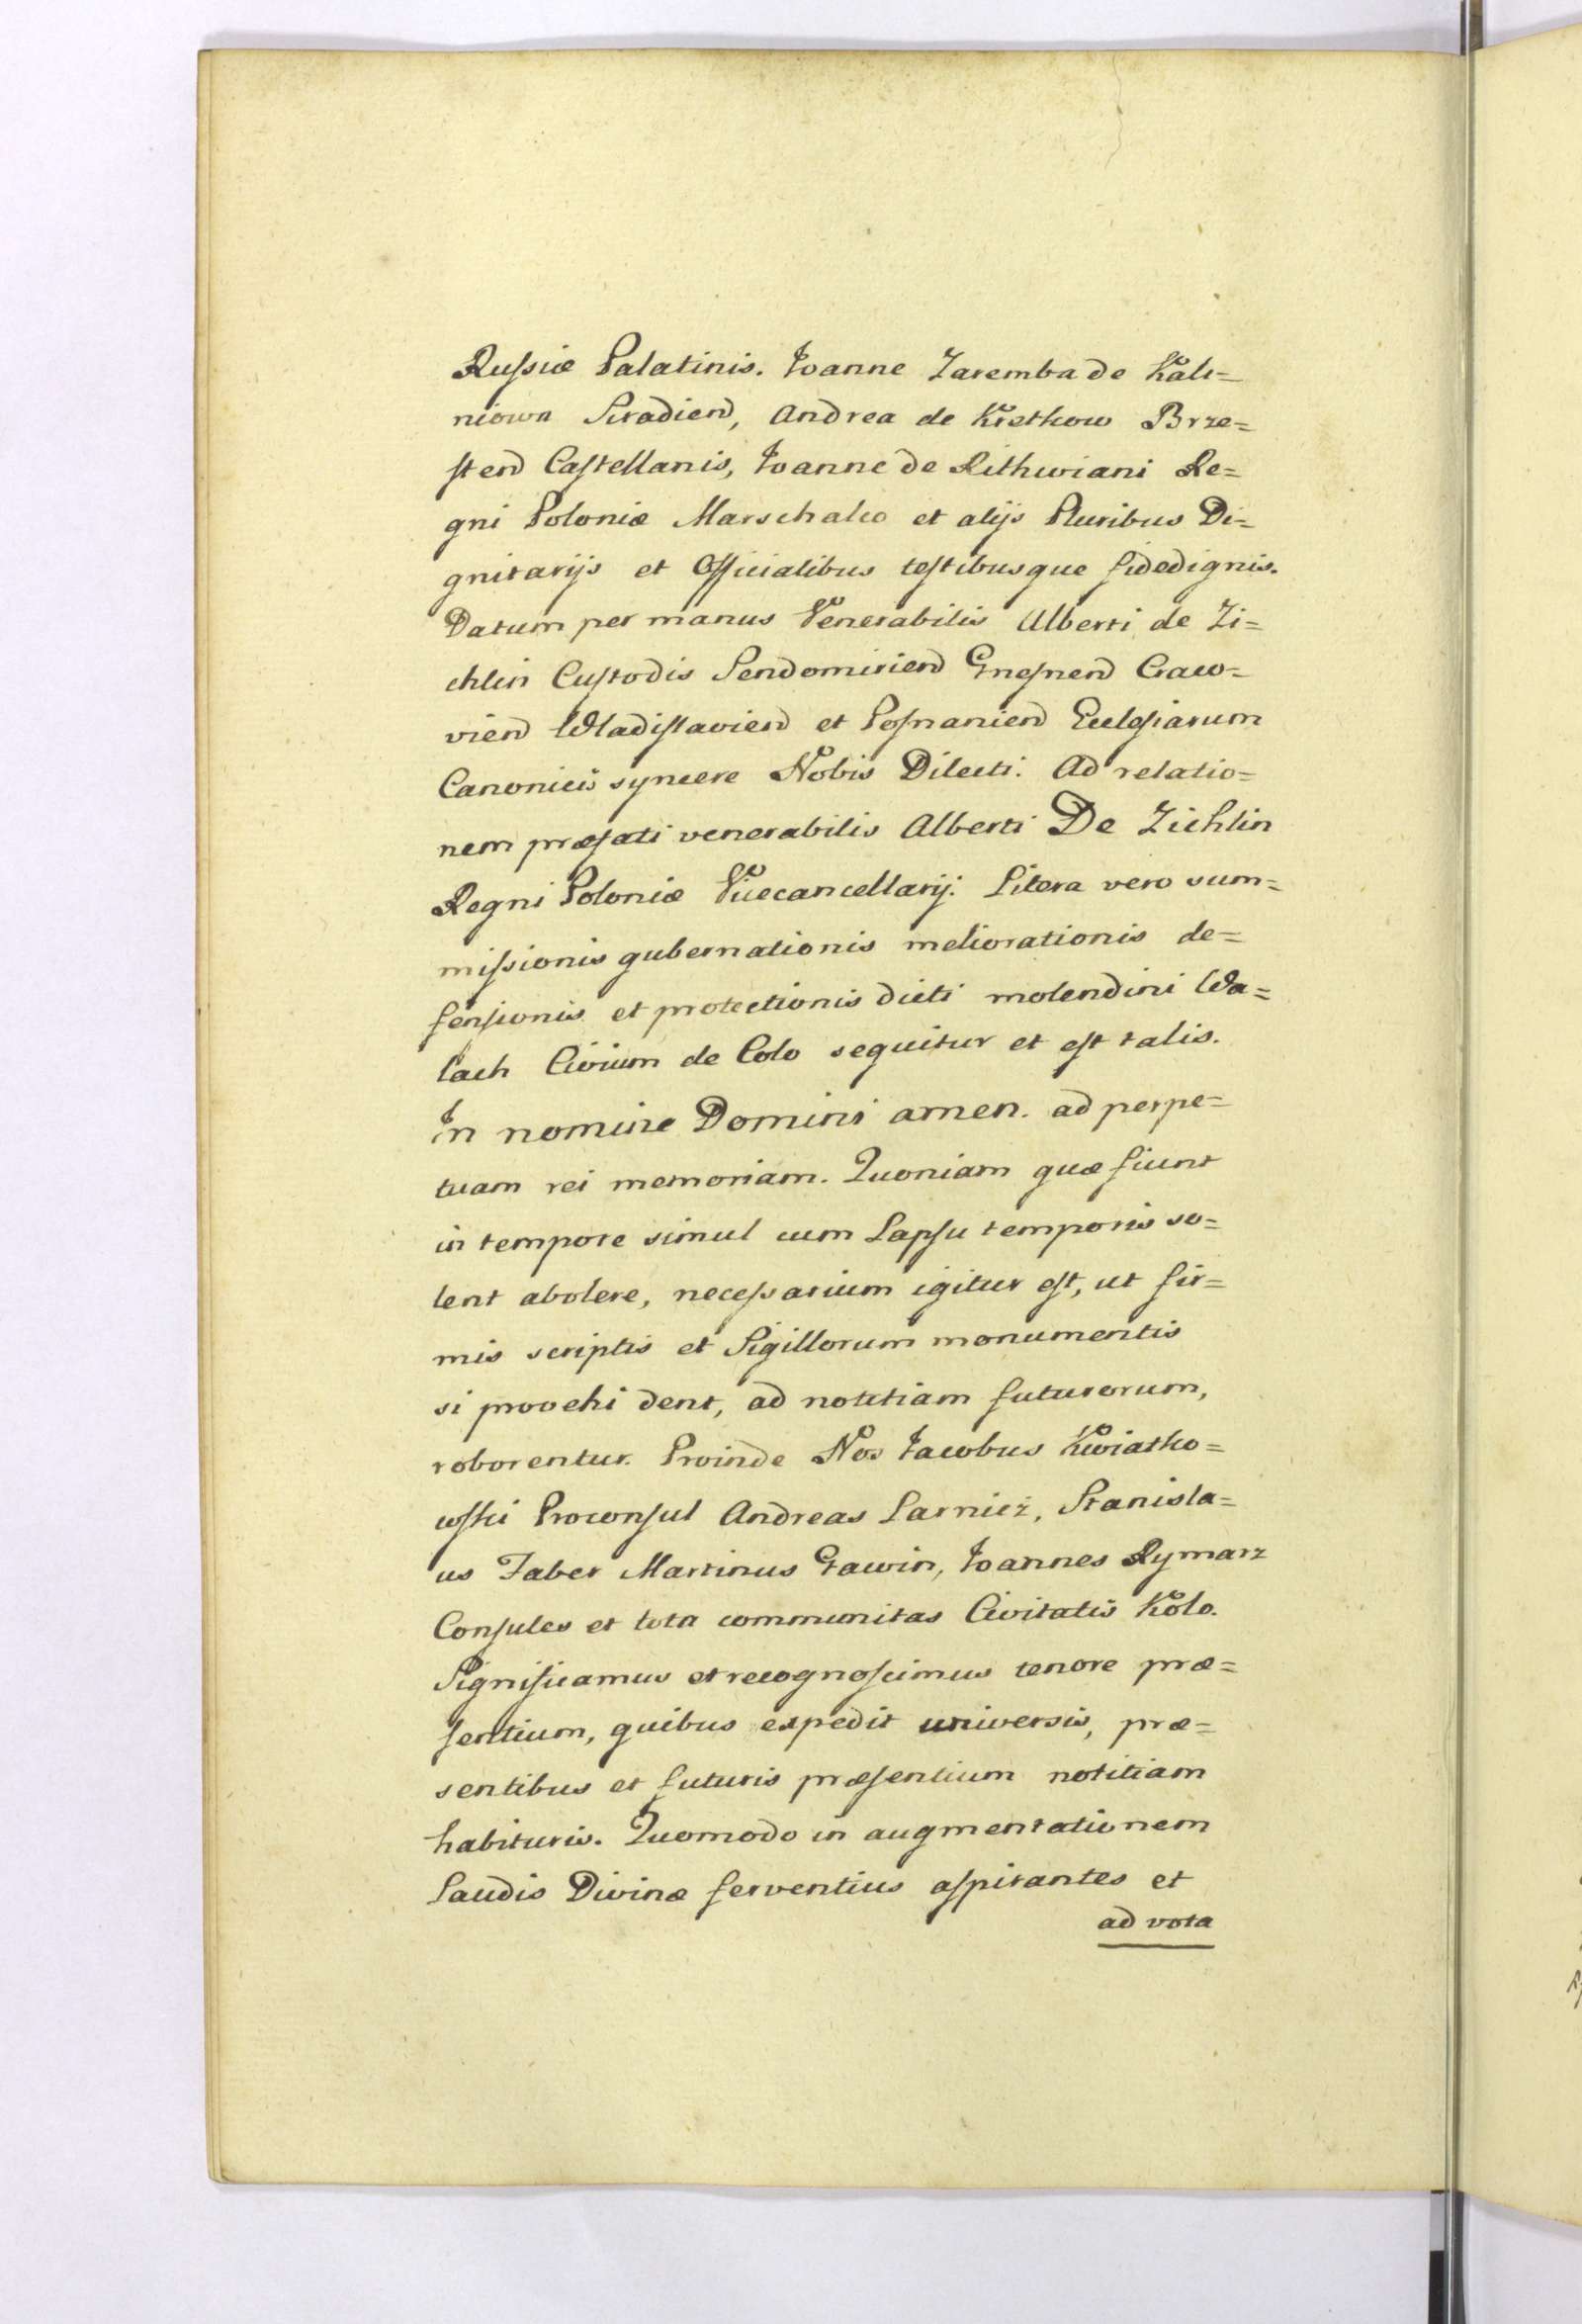 Russiæ Palatinis. Joanne Zaremba de Kali=
niowa Siradien, Andrea de Krethow Brze=
sten Castellanis, Joanne de Rithwiani Re=
gni Poloniæ Marschalco et alijs Pluribus Di=
gnitarijs et Officialibus testibusque fidedignis.
Datum per manus Venerabilis Alberti de Zi=
chlin Custodis Sendomirien Gnesnen Craco=
vien Wladislavien et Posnanien Ecclesiarum
Canonici syncere Nobis Dilecti. Ad relatio=
nem præfati venerabilis Alberti De Zichlin
Regni Poloniæ Vicecancellarij. Litera vero sum=
missionis gubernationis meliorationis de=
fensionis et protectionis dicti molendini Wa=
lach Civium de Colo sequitur et est talis.
In nomine Domini amen. ad perpe=
tuam rei memoriam. Quoniam quæ fiunt
in tempore simul cum Lapsu temporis so=
lent abolere, necessarium igitur est, ut fir=
mis scriptis et Sigillorum monumentis
si provehi dent, ad notitiam futurorum,
roborentur. Proinde Nos Jacobus Kwiatko=
wski Proconsul Andreas Larnicz, Stanisla=
us Faber Martinus Gawin, Joannes Rymarz
Consules et tota communitas Civitatis Kolo.
Significamus et recognoscimus tenore præ=
sentium, quibus expedit universis, præ=
sentibus et futuris præsentium notitiam
habituris. Quomodo in augmentationem
Laudis Divinæ ferventius aspirantes et
ad vota